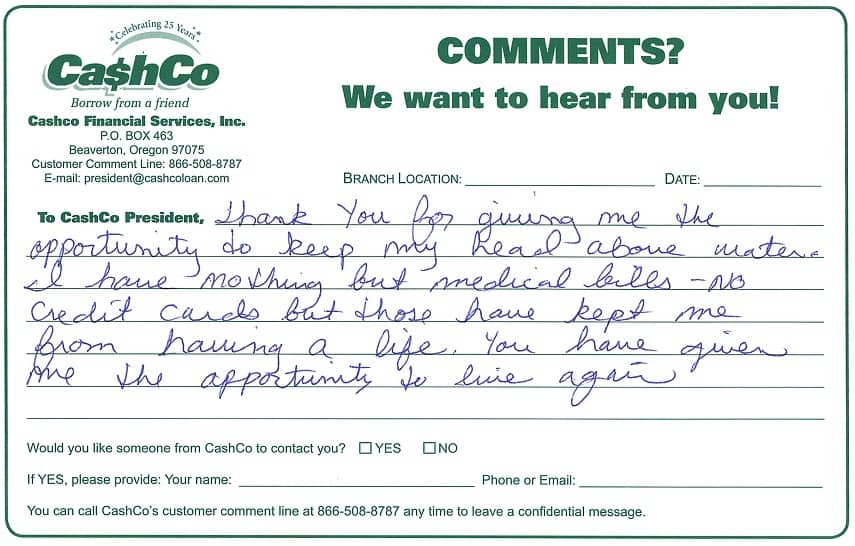 Celebrating 25 Years
Ca$hCo
Borrow from a friend
Cashco Financial Services, Inc.
P.O. BOX 463
Beaverton, Oregon 97075
Customer Comment Line: 866-508-8787
E-mail: president@cashcoloan.com
COMMENTS?
We want to hear from you!
BRANCH LOCATION: DATE:
To CashCo President, Thank You for giving me the
opportunity to keep my head above water.
I have nothing but medical bills - NO
credit cards but those have kept me
from having a life. You have given
me the opportunity to live again
Would you like someone from CashCo to contact you? YES NO
If YES, please provide: Your name: Phone or Email:
You can call CashCo's customer comment line at 866-508-8787 any time to leave a confidential message.